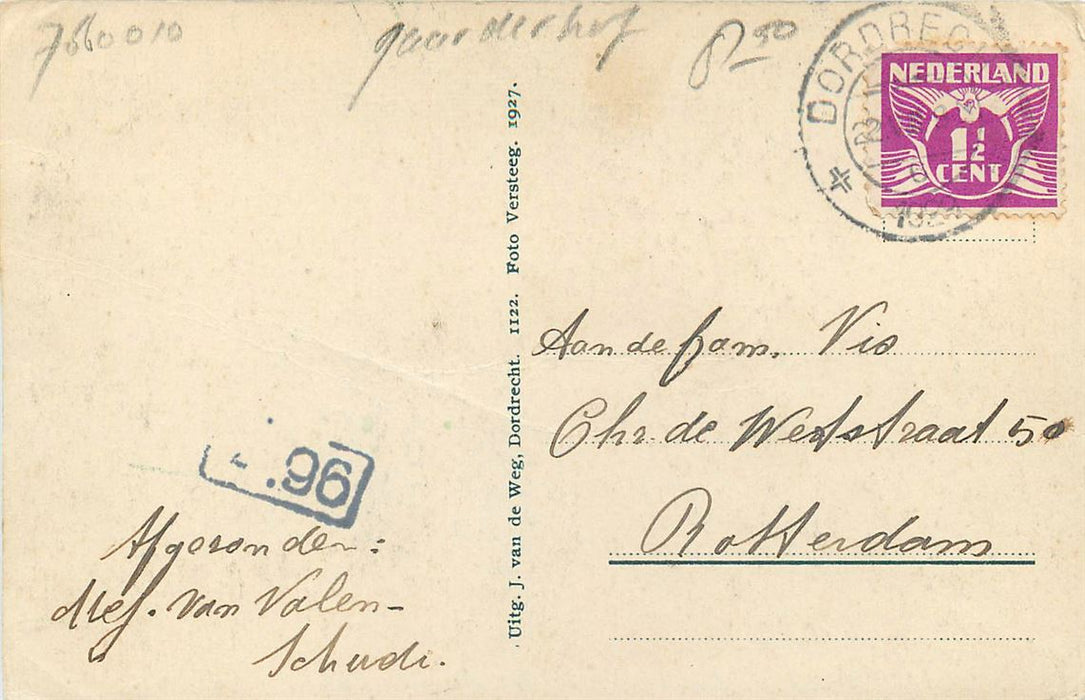 7660010
gaarderhof
8.50
DORDRECHT
NEDERLAND
1½
CENT
Uitg. J. van de Weg, Dordrecht. 1122. Foto Versteeg. 1927.
Aan de fam. Vis
Chr. de Wetstraat 50
Rotterdam
.96
Afgezonden:
Mej. van Valen-